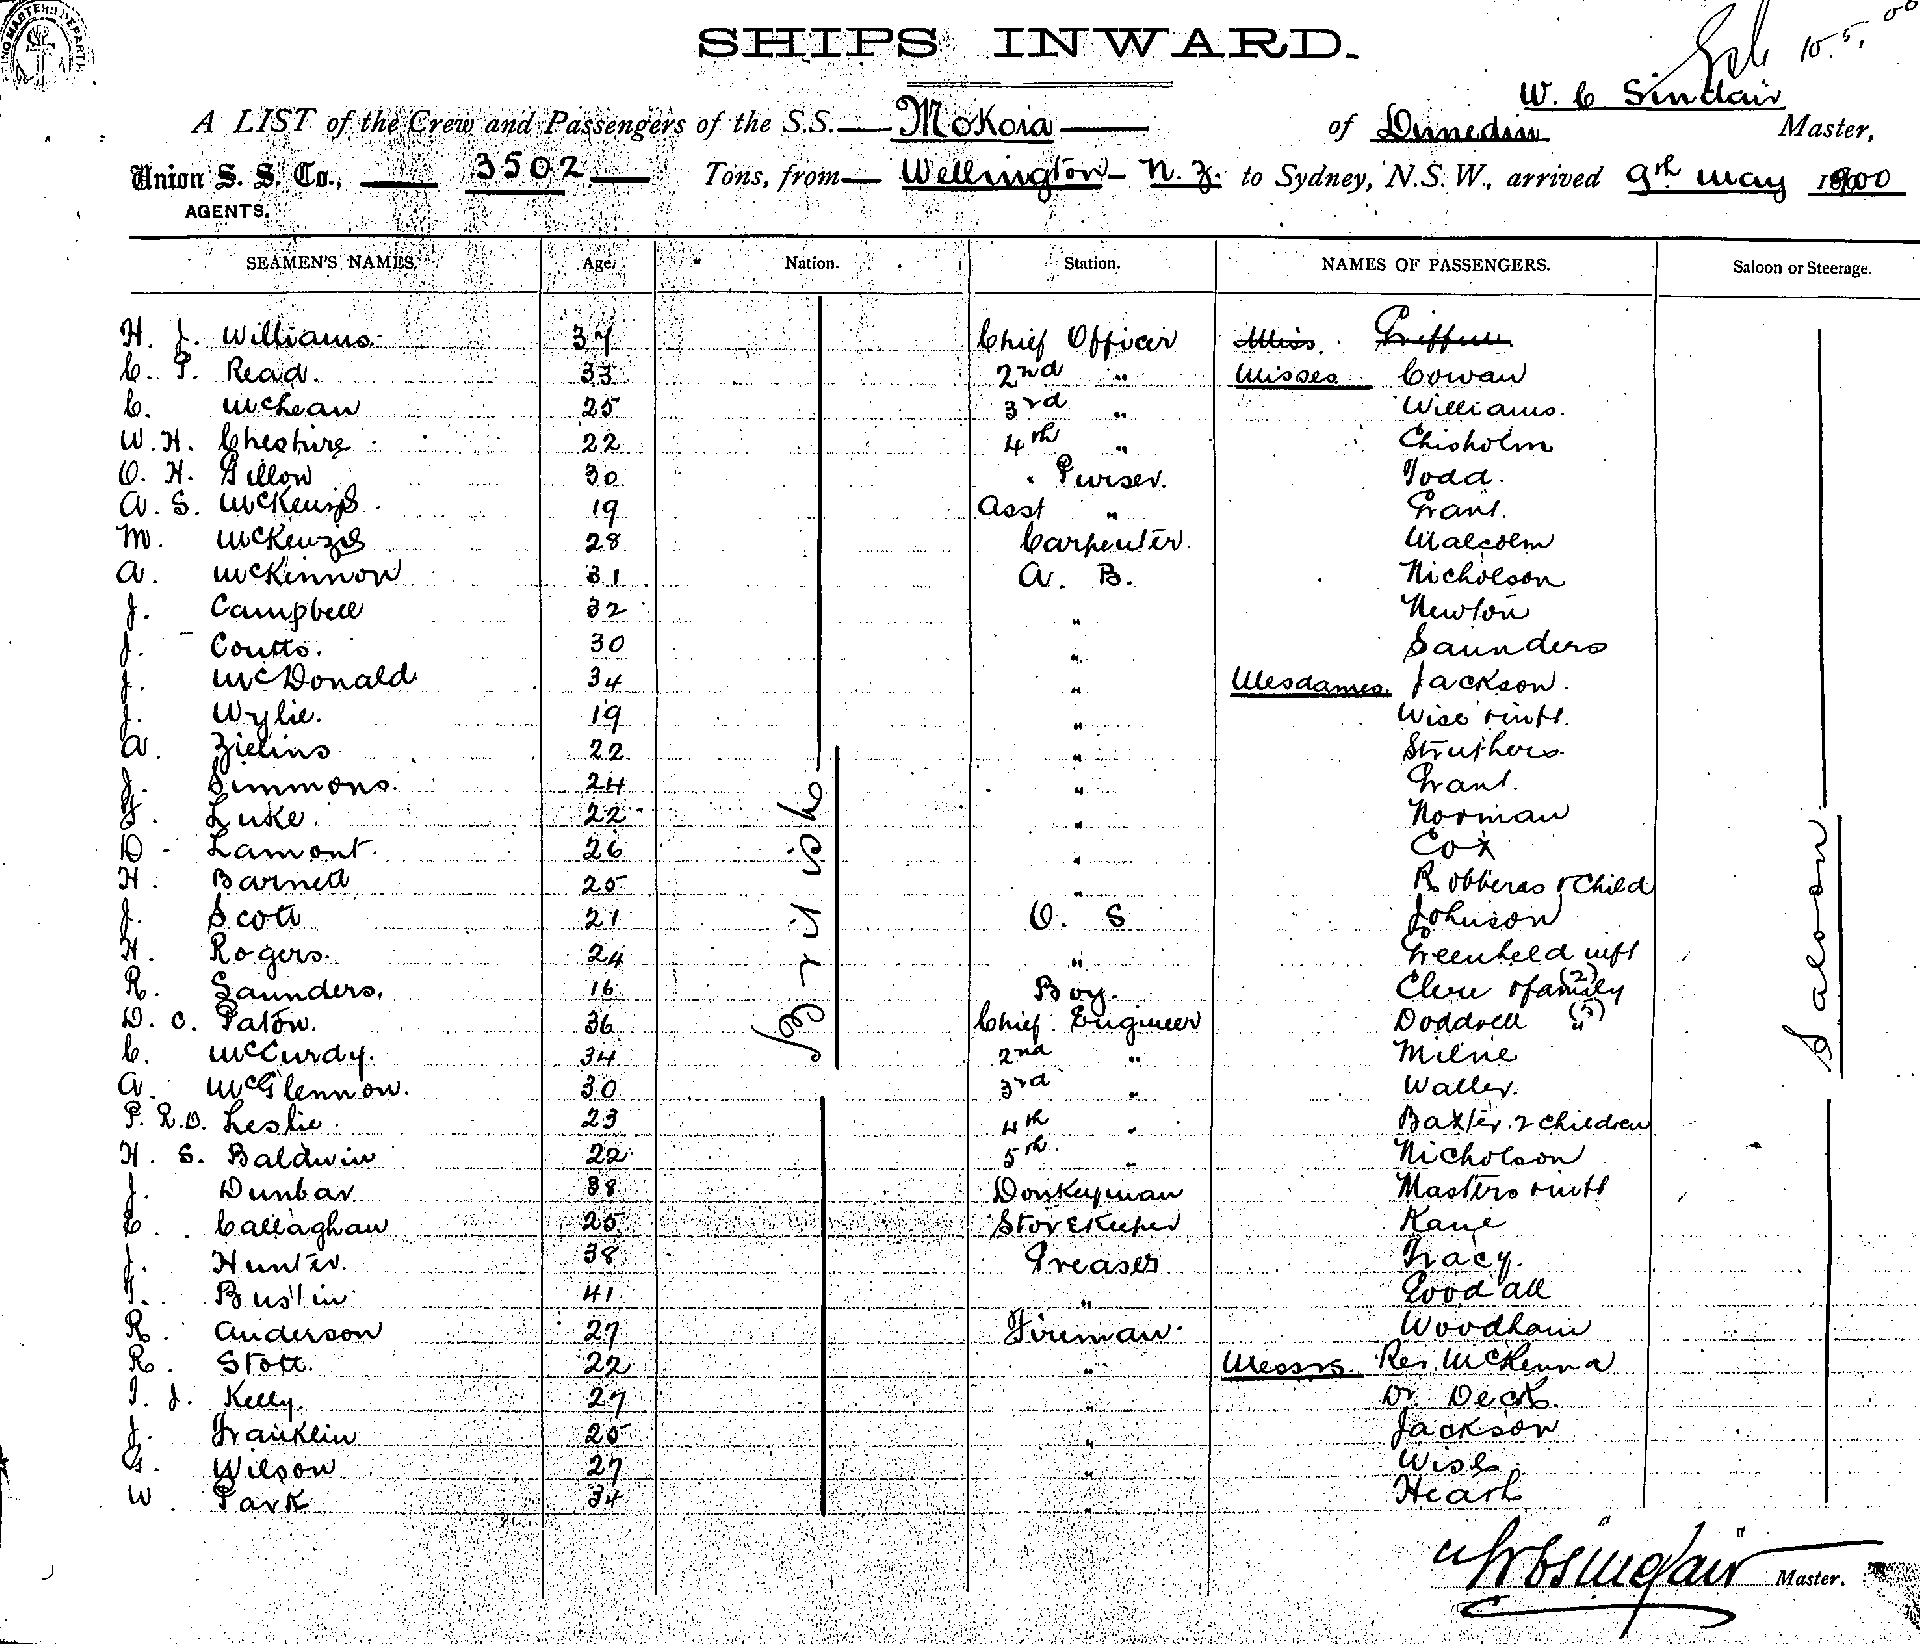 SHIPS INWARD.
10.5.00
W. C Sinclair
A LIST of the Crew and Passengers of the S.S. Mokoia of Dunedin Master,
Union S. S. Co., 3502 Tons, from Wellington N.Z. to Sydney, N.S.W., arrived 9th May 1900
AGENTS.
SEAMEN'S NAMES. Age. Nation. Station. NAMES OF PASSENGERS. Saloon or Steerage.
H. J. Williams 37 Chief Officer Miss
C. P. Read. 33 2nd " Misses Cowan
C. McLean 25 3rd " Williams.
W. H. Cheshire 22 4th " Chisholm
O. H. Gillow 30 Purser. Todd.
A. S. McKenzie 19 Asst " Grant.
M. McKenzie 28 Carpenter. Malcolm
A. McKinnon 31 A. B. Nicholson
J. Campbell 32 " Newton
J. Coutts. 30 " Saunders
J. McDonald 34 " Mesdames. Jackson.
J. Wylie. 19 " Wise
A. Zielins 22 " Struthers
J. Simmons. 24 " Grant.
Luke. 22 " Norman
D Lamont. 26 " Cox
H. Barned 25 " & Child
J. Scott 21 O. S Johnson
H. Rogers. 24 " Greenfield
R. Saunders. 16 Boy. Clere & family (2)
D. C. Paton. 36 Chief Engineer Doddrell " (3)
C. McCurdy. 34 2nd " Milne
A. McGlennon. 30 3rd " Waller.
P. R.D. Leslie 23 4th " Baxter. 2 children
H. S. Baldwin 22 5th " Nicholson
J. Dunbar 38 Donkeyman Masters
C. Callaghan 25 Storekeeper Kane
J. Hunter. 38 Greaser Tracy.
T. Bustin 41 " Goodall
R. Anderson 27 Fireman Woodham
R. Stott. 22 " Messrs. Rev. McKenna
T. J. Kelly. 27 " Dr Deck.
J. Franklin 25 " Jackson
G. Wilson 27 " Wise
W. Park 34 " Heath
British
Saloon
W C Sinclair Master.